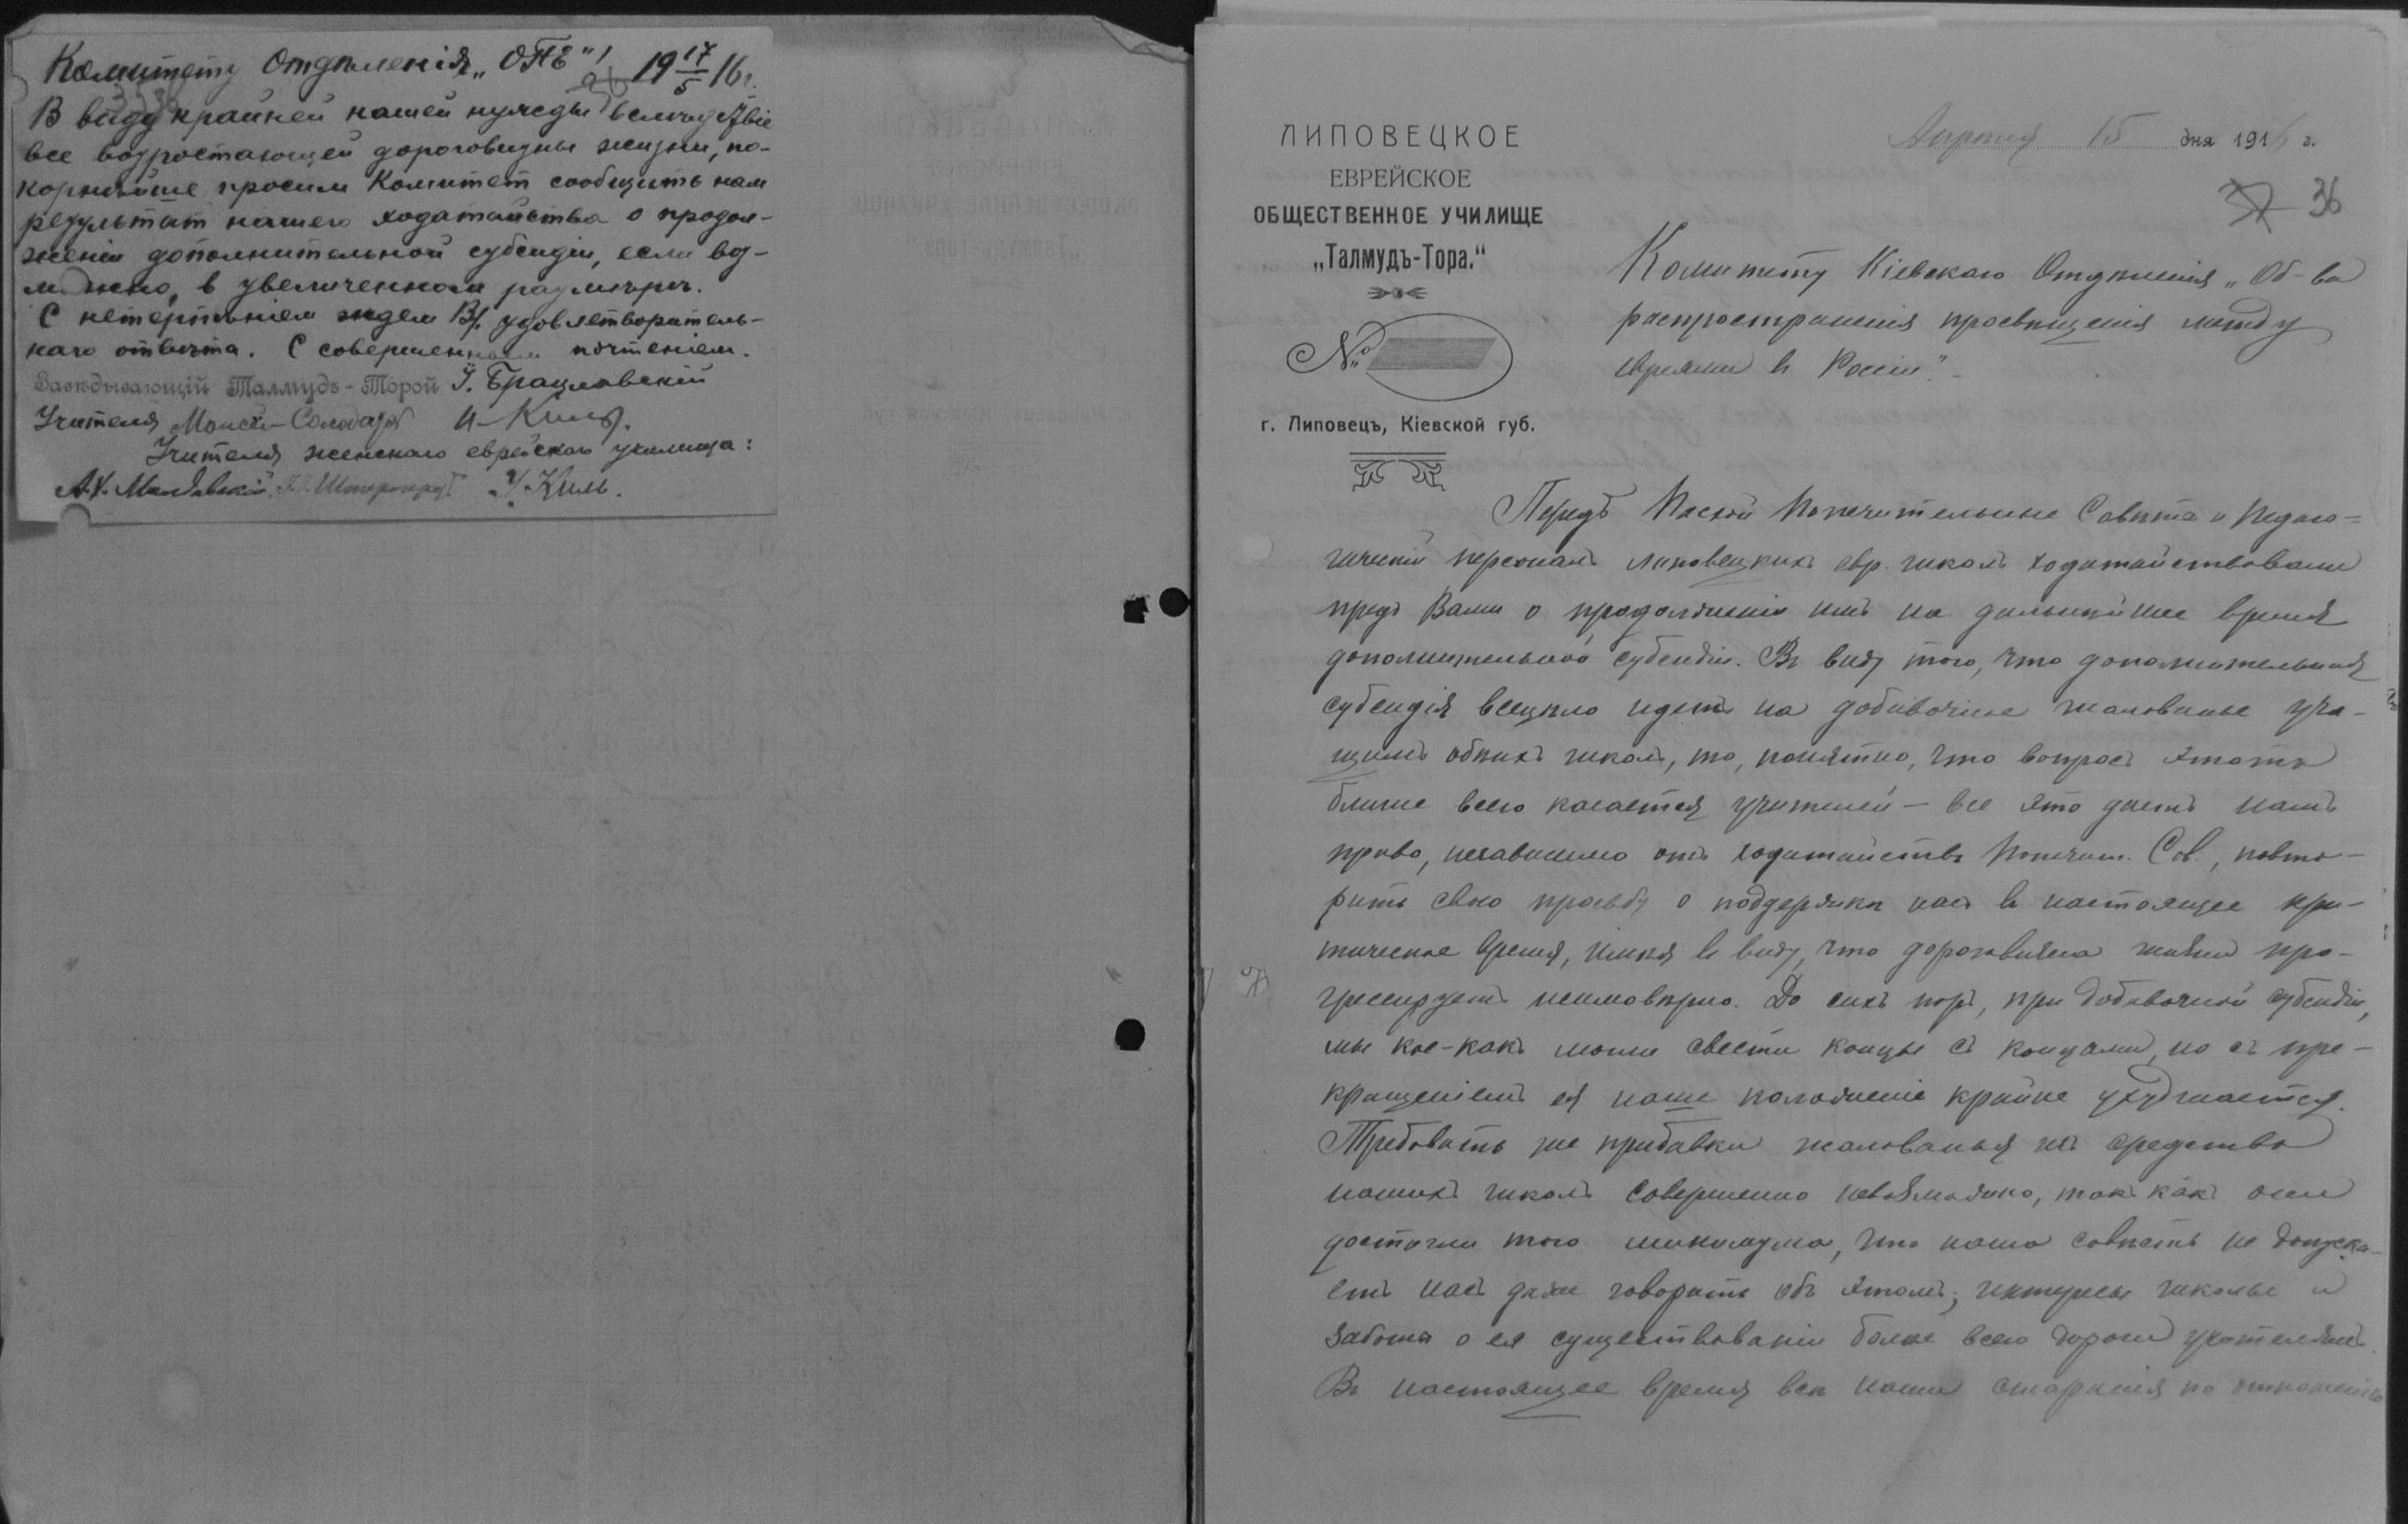 Комитету Отдѣленія „ОПЕ"! 19 17/5 16 г.
В виду крайней нашей нужды вслѣдствіе
все возростающей дороговизны жизни, по-
корнѣйше просим Комитет сообщить нам
результат нашего ходатайства о продол-
женіи дополнительной субсидіи, если воз-
можно, в увеличенном размѣрѣ.
С нетерпѣніем ждем В/. удовлетворитель-
наго отвѣта. С совершенным почтеніем.
Завѣдывающій Талмудъ-Торой І. Брацлавскій
Учителя Моисей Солодарь И. Киль.
Учителя женскаго еврейскаго училища:
У. Киль.
ЛИПОВЕЦКОЕ
ЕВРЕЙСКОЕ
ОБЩЕСТВЕННОЕ УЧИЛИЩЕ
„Талмудъ-Тора."
№
г. Липовецъ, Кіевской губ.
Апрѣля 15 дня 1916 г.
37 36
Комитету Кіевскаго Отдѣленія „Об-ва
распространенія просвѣщенія между
евреями въ Россіи".
Передъ Пасхой Попечительные Совѣта и Педаго=
гическій персоналъ Липовецкихъ евр. школъ ходатайствовали
предъ Вами о продолженіи имъ на дальнѣйшее время
дополнительной субсидіи. Въ виду того, что дополнительная
субсидія всецѣло идетъ на добавочное жалованье уча-
щимъ обѣихъ школъ, то, понятно, что вопросъ этотъ
ближе всего касается учителей – все это даетъ намъ
право, независимо отъ ходатайства Попечит. Сов., повто-
рить свою просьбу о поддержкѣ насъ въ настоящее кри-
тическое время, имѣя въ виду, что дороговизна жизни про-
грессируетъ неимовѣрно. До сихъ поръ, при добавочной субсидіи,
мы кое-какъ могли свести концы съ концами, но съ пре-
кращеніемъ ея наше положеніе крайне ухудшается.
Требовать же прибавки жалованья изъ средствъ
нашихъ школъ совершенно невозможно, такъ какъ они
достигли того минимума, что наша совѣсть не допуска-
етъ насъ даже говорить объ этомъ; интересы школы и
забота о ея существованіи болѣе всего дороги учителямъ.
Въ настоящее время всѣ наши старанія по отношенію